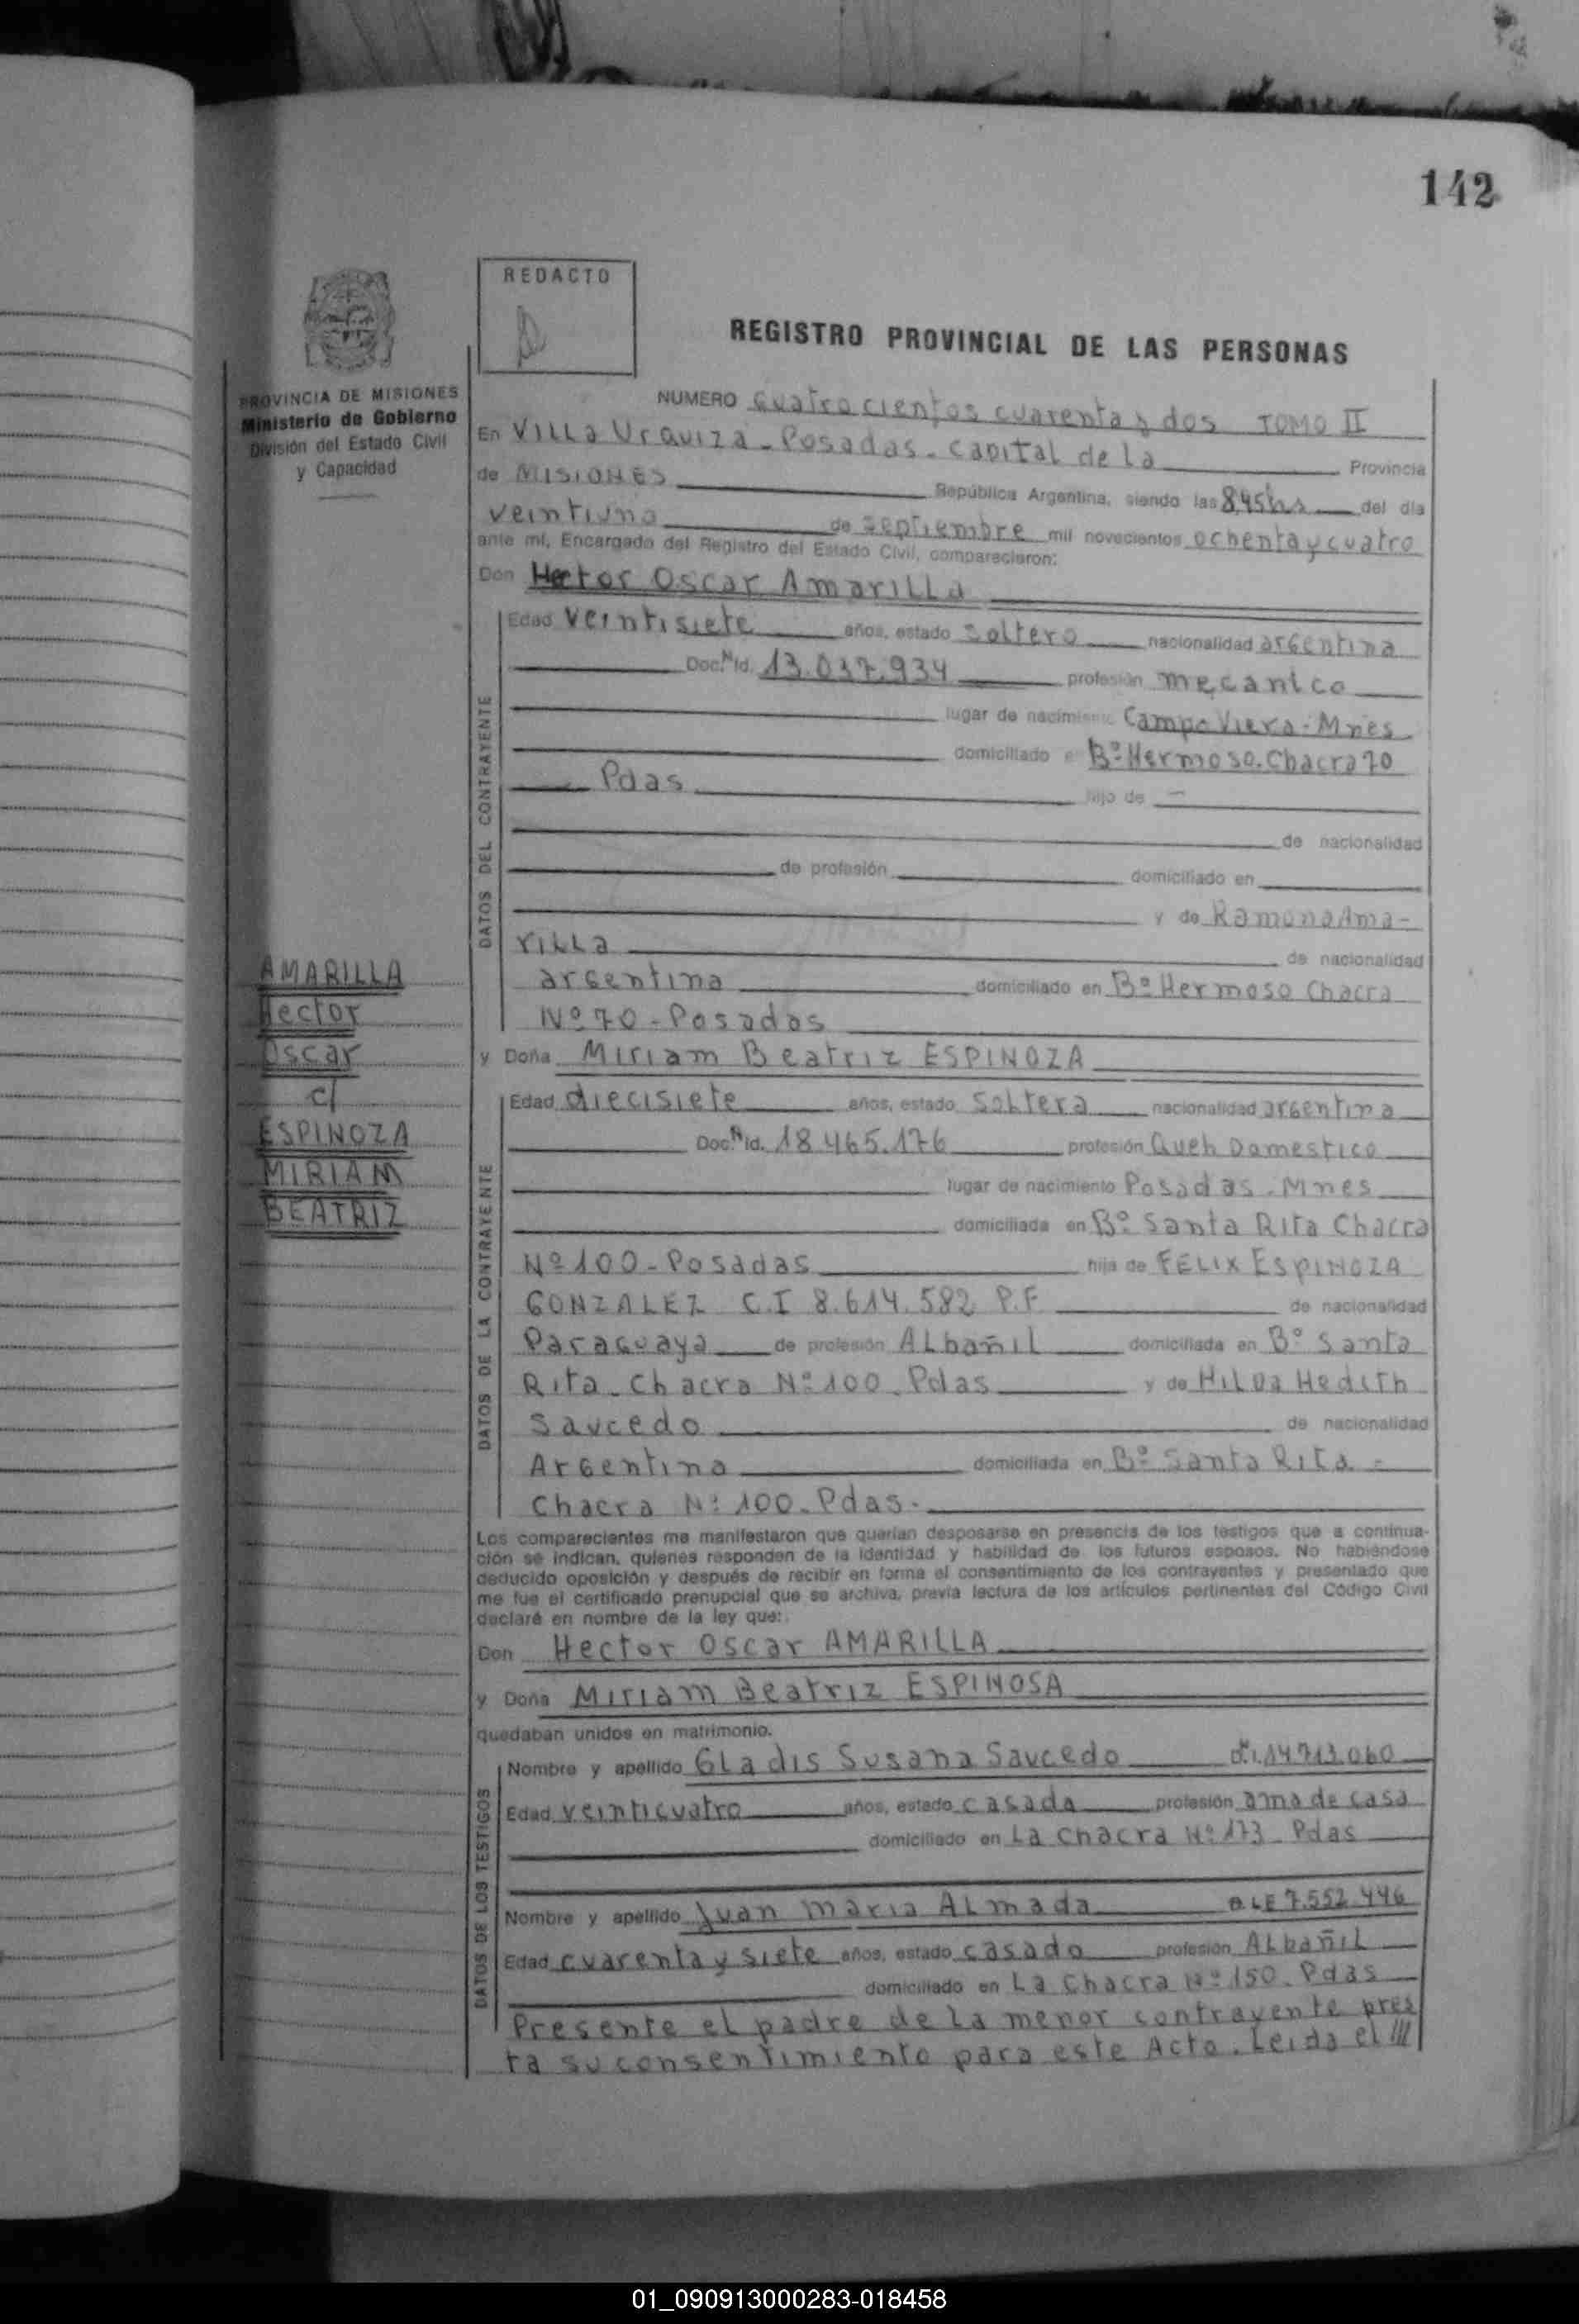 142
REDACTO
REGISTRO PROVINCIAL DE LAS PERSONAS
PROVINCIA DE MISIONES
Ministerio de Gobierno
División del Estado Civil
y Capacidad
NUMERO Cuatrocientos cuarenta y dos TOMO II
En Villa Urquiza - Posadas - Capital de la Provincia
de MISIONES República Argentina, siendo las 8,45hs del día
veintiuno de septiembre mil novecientos ochenta y cuatro
ante mí, Encargado del Registro del Estado Civil, comparecieron:
Don Hector Oscar Amarilla
Edad veintisiete años, estado soltero nacionalidad argentina
Doc. N Id. 13.037.934 profesión mecanico
lugar de nacimiento Campo Viera - Mnes
domiciliado e Bº Hermoso. Chacra 70
Pdas hijo de -
de nacionalidad
de profesión domiciliado en
y de Ramona Ama-
rilla de nacionalidad
argentina domiciliado en Bº Hermoso Chacra
Nº 70 - Posadas
y Doña Miriam Beatriz ESPINOZA
Edad diecisiete años, estado soltera nacionalidad argentina
Doc. N Id. 18.465.176 profesión Queh Domestico
lugar de nacimiento Posadas - Mnes
domiciliada en Bº Santa Rita Chacra
Nº 100 - Posadas hija de FELIX ESPINOZA
GONZALEZ C.I 8.614.582 P.F de nacionalidad
Paraguaya de profesión Albañil domiciliada en Bº Santa
Rita - Chacra Nº 100. Pdas y de HILDA Hedith
Saucedo de nacionalidad
Argentina domiciliada en Bº Santa Rita -
Chacra Nº 100 - Pdas.
DATOS DEL CONTRAYENTE
DATOS DE LA CONTRAYENTE
AMARILLA
Hector
Oscar
c/
ESPINOZA
MIRIAM
BEATRIZ
Los comparecientes me manifestaron que querían desposarse en presencia de los testigos que a continua-
ción se indican, quienes responden de la identidad y habilidad de los futuros esposos. No habiéndose
deducido oposición y después de recibir en forma el consentimiento de los contrayentes y presentado que
me fue el certificado prenupcial que se archiva, previa lectura de los artículos pertinentes del Código Civil
declaré en nombre de la ley que:
Don Hector Oscar AMARILLA
y Doña Miriam Beatriz ESPINOSA
quedaban unidos en matrimonio.
DATOS DE LOS TESTIGOS
Nombre y apellido Gladis Susana Saucedo 14.713.060
Edad veinticuatro años, estado casada profesión ama de casa
domiciliado en La Chacra Nº 173 - Pdas
Nombre y apellido Juan Maria Almada LE 7.552.446
Edad cuarenta y siete años, estado casado profesión Albañil
domiciliado en La Chacra Nº 150 - Pdas
Presente el padre de la menor contrayente pres
ta su consentimiento para este Acto. Leida el ///
01_090913000283-018458